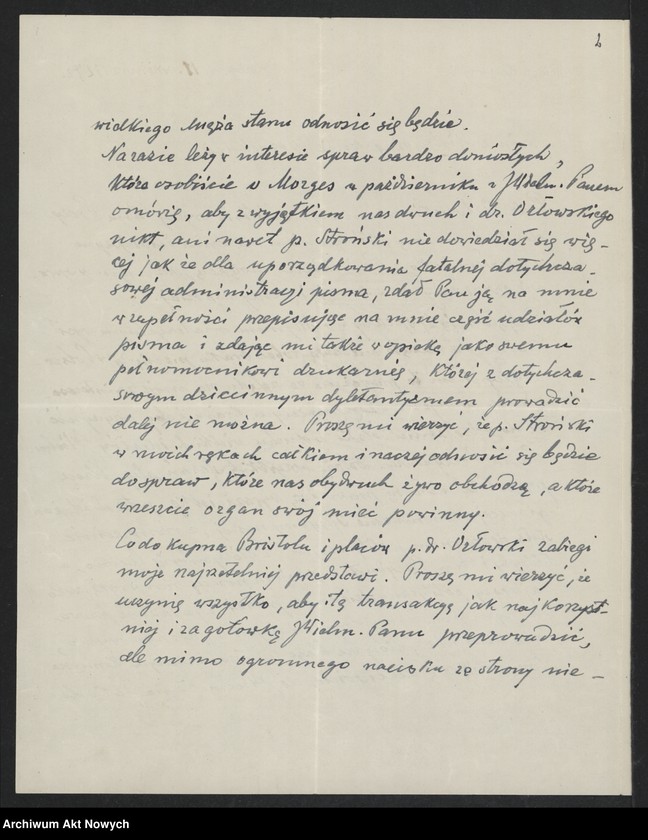 2
wielkiego męża stanu odnosić się będzie.
Narazie leży w interesie spraw bardzo doniosłych,
które osobiście w Morges w październiku z JWielm. Panem
omówię, aby z wyjątkiem nas dwuch i dr. Orłowskiego
nikt, ani nawet p. Stroński nie dowiedział się wię-
cej jak że dla uporządkowania fatalnej dotychcza-
sowej administracji pisma, zdał Pan ją na mnie
w zupełności przepisując na mnie część udziałów
pisma i zdając mi także w opiekę jako swemu
pełnomocnikowi drukarnię, której z dotychcza-
sowym dziecinnym dyletantyzmem prowadzić
dalej nie można. Proszę mi wierzyć, że p. Stroński
w moich rękach całkiem inaczej odnosić się będzie
do spraw, które nas obydwuch żywo obchodzą, a które
wreszcie organ swój mieć powinny.
Co do kupna Bristolu i placów p. dr. Orłowski zabiegi
moje najrzetelniej przedstawi. Proszę mi wierzyć, że
uczynię wszystko, aby tę transakcję jak najkorzyst-
niej i za gotówkę JWielm. Panu przeprowadzić,
ale mimo ogromnego nacisku ze strony nie-
Archiwum Akt Nowych